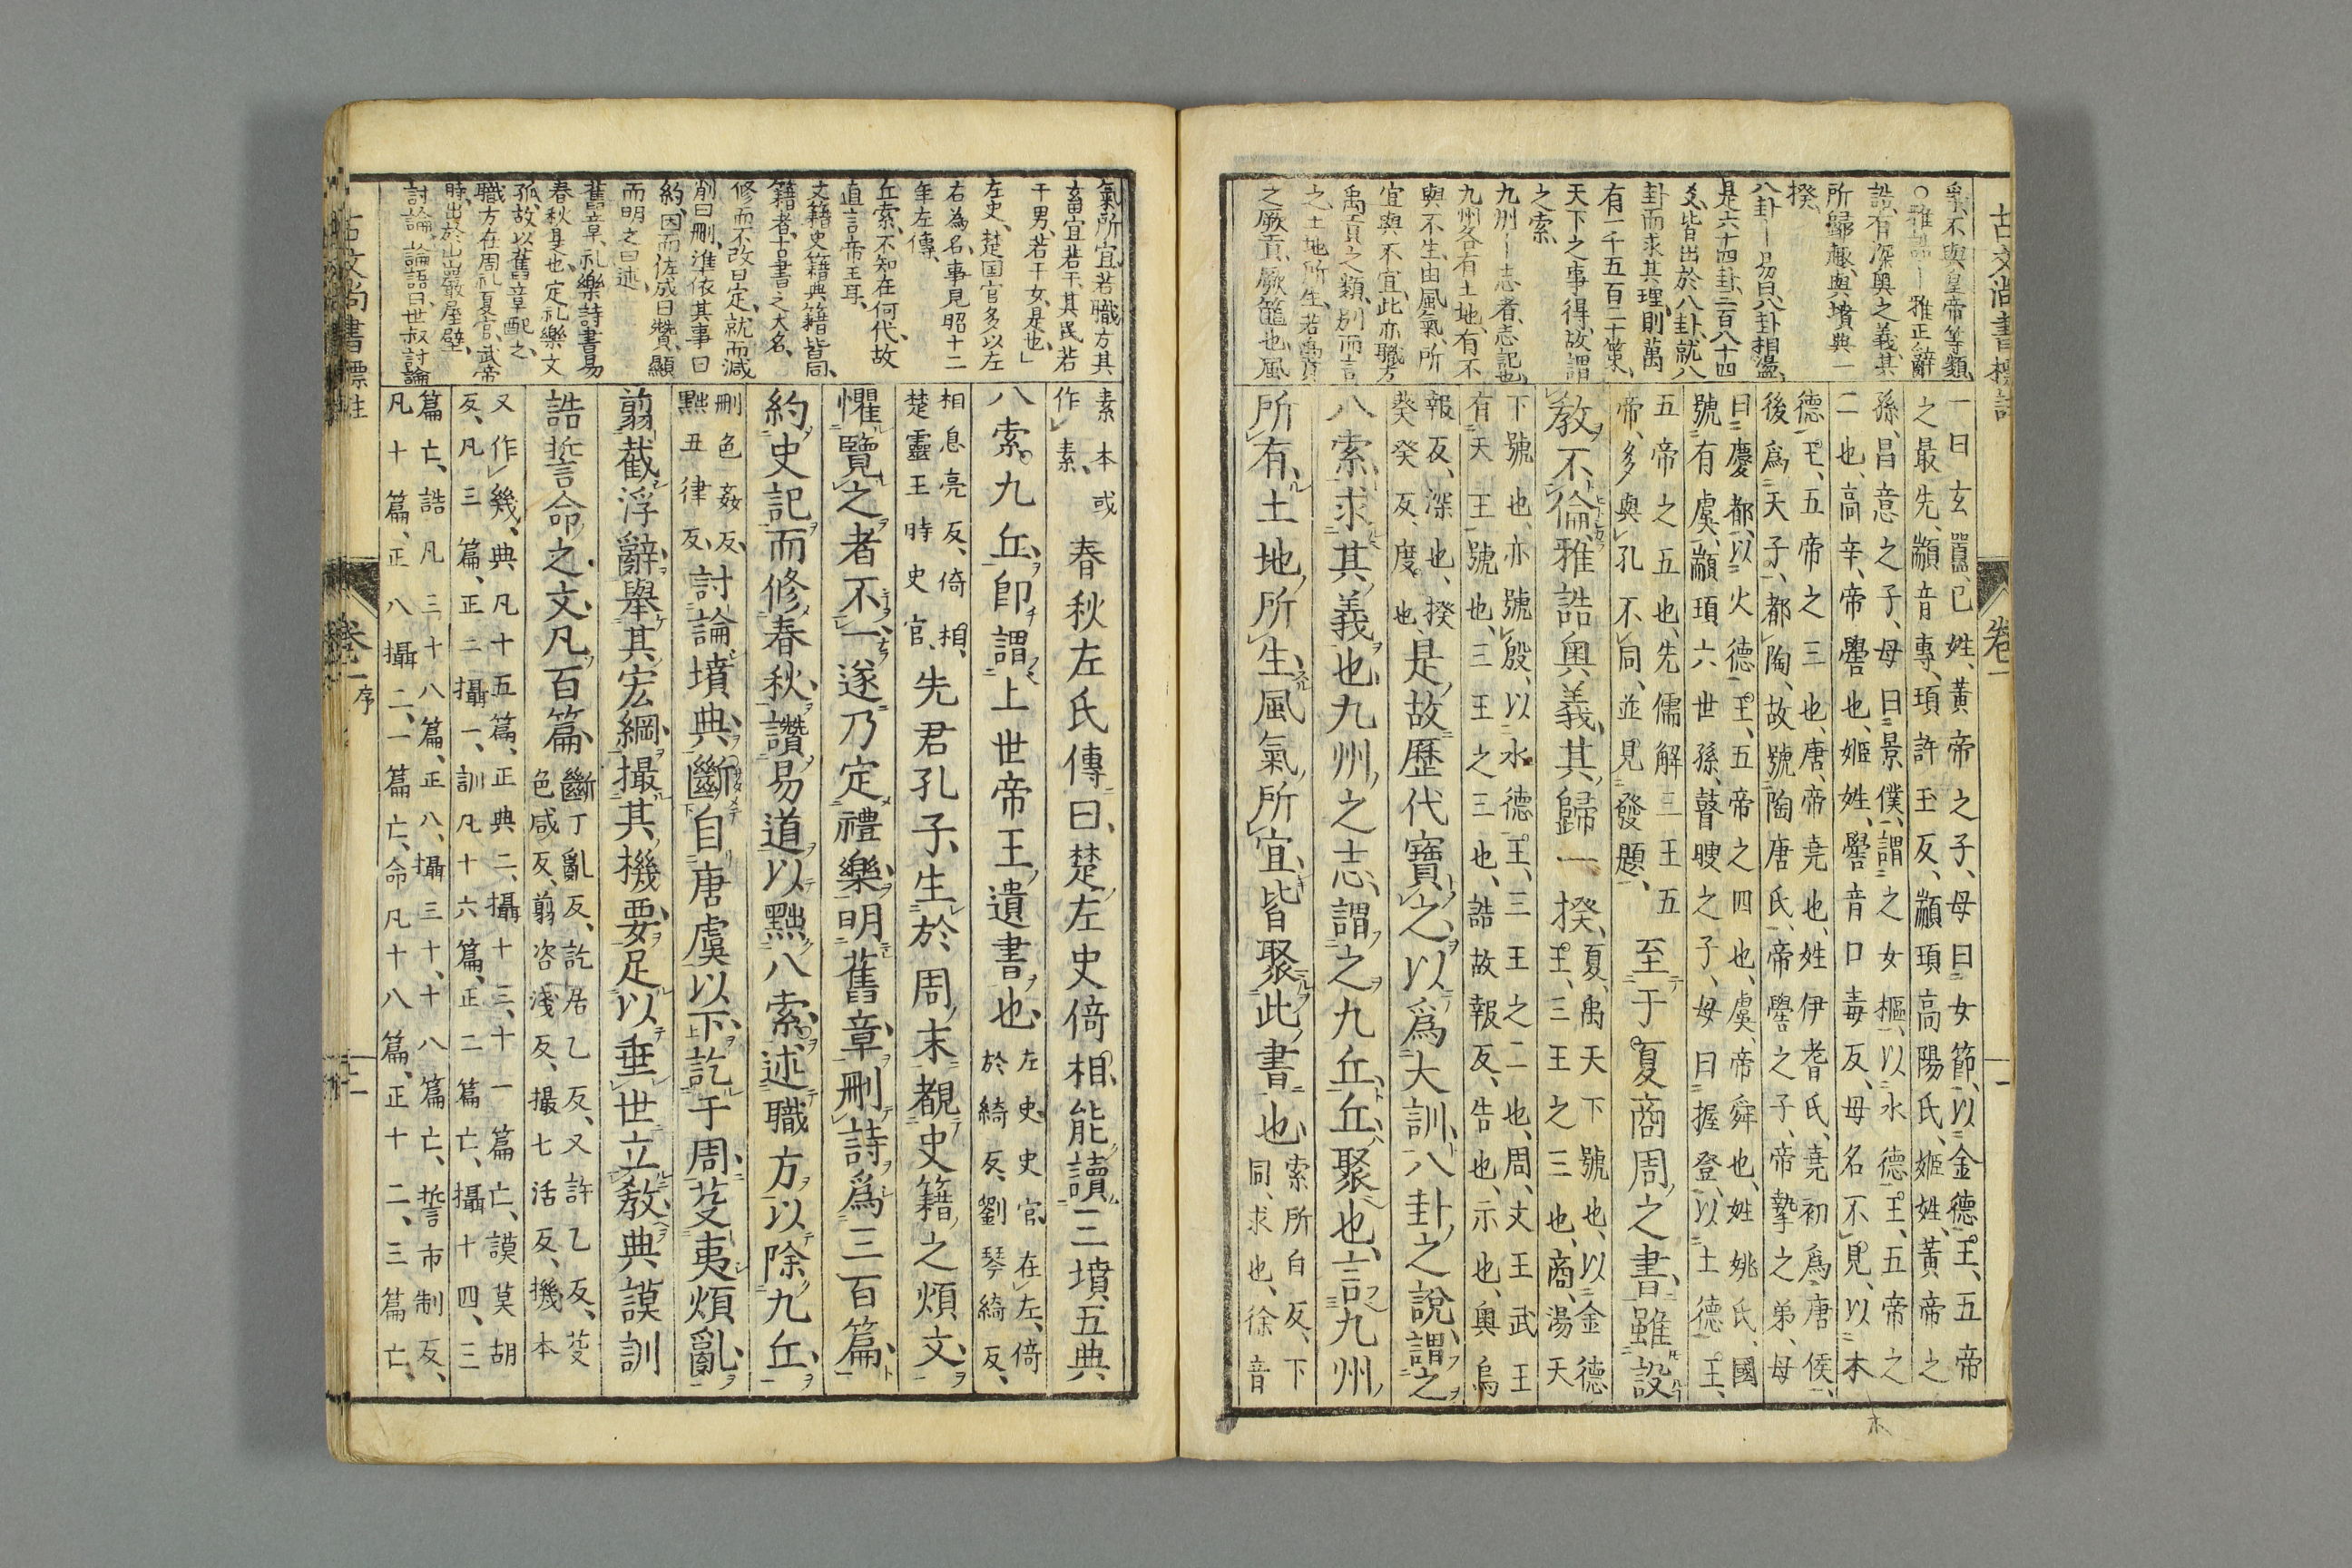 古文尚書標註
卷一
一
皇不與皇帝等類
○雅誥ー雅正辭
誥有深奧之義其
所歸趣與墳典一
揆
八卦ー易曰八卦相盪
是六十四卦三百八十四
爻皆出於八卦就八
卦而求其理則萬
有一千五百二十策
天下之事得故謂
之索
九州ー志者志記也
九州各有土地有不
與不生由風氣所
宜與不宜此亦職方
禹貢之類別而言
之土地所生若禹貢
之厥貢厥篚也風
一曰玄囂已姓黃帝之子母曰女節以金德王五帝
之最先顓音專頊許玉反顓頊高陽氏姬姓黃帝之
孫昌意之子母曰景僕謂之女樞以水德王五帝之
二也高辛帝嚳也姬姓嚳音口毒反母名不見以本
德王五帝之三也唐帝堯也姓伊耆氏堯初爲唐侯
後爲天子都陶故號陶唐氏帝嚳之子帝摯之弟母
曰慶都以火德王五帝之四也虞帝舜也姓姚氏國
號有虞顓頊六世孫瞽瞍之子母曰握登以土德王
五帝之五也先儒解三王五
帝多與孔不同並見發題
至于夏商周之書雖設
教不倫雅誥奧義其歸一揆
夏禹天下號也以金德
王三王之三也商湯天
下號也亦號殷以水德王三王之二也周文王武王
有天王號也三王之三也誥故報反告也示也奧烏
報反深也揆
葵癸反度也
是故歷代寶之以爲大訓八卦之說謂之
八索求其義也九州之志謂之九丘丘聚也言九州
所有土地所生風氣所宜皆聚此書也
索所白反下
同求也徐音
本
氣所宜若職方其
畜宜若干其民若
干男若干女是也
左史楚国官多以左
右為名事見昭十二
年左傳
丘索不知在何代故
直言帝王耳
文籍史籍典籍皆同
籍者古書之大名
修而不改曰定就而減
削曰刪準依其事曰
約因而佐成曰贊顯
而明之曰述
舊章礼樂詩書易
春秋是也定礼樂文
孤故以舊章配之
職方在周礼夏官武帝
時出於山巖屋壁
討論論語曰世叔討論
素本或
作素
春秋左氏傳曰楚左史倚相能讀三墳五典
八索九丘卽謂上世帝王遺書也
左史史官在左倚
於綺反劉琴綺反
相息亮反倚相
楚靈王時史官
先君孔子生於周末覩史籍之煩文
懼覽之者不一遂乃定禮樂明舊章刪詩爲三百篇
約史記而修春秋讚易道以黜八索述職方以除九丘
刪色姦反
黜丑律反
討論墳典斷自唐虞以下訖于周芟夷煩亂
翦截浮辭舉其宏綱撮其機要足以垂世立敎典謨訓
誥誓命之文凡百篇
斷丁亂反訖居乙反又許乙反芟
色咸反翦咨淺反撮七活反機本
又作幾典凡十五篇正典二攝十三十一篇亡謨莫胡
反凡三篇正二攝一訓凡十六篇正二篇亡攝十四三
篇亡誥凡三十八篇正八攝三十十八篇亡誓市制反
凡十篇正八攝二一篇亡命凡十八篇正十二三篇亡
古文尚書標註
卷一
序
二